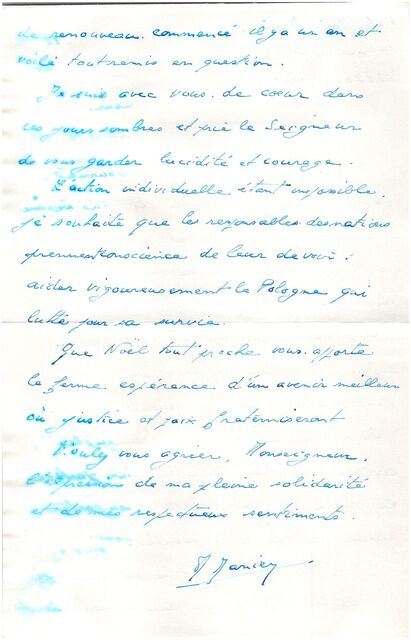 de renouveau commencé il y a un an et
voilà tout remis en question.
Je suis avec vous de coeur dans
ces jours sombres et prie le Seigneur
de vous garder lucidité et courage.
L'action individuelle étant impossible,
je souhaite que les responsables des nations
prennent conscience de leur devoir :
aider vigoureusement la Pologne qui
lutte pour sa survie.
Que Noël tout proche vous apporte
la ferme espérance d'un avenir meilleur
où justice et paix fraterniseront
Veuillez vous agréer, Monseigneur,
l'expression de ma pleine solidarité
et de mes respectueux sentiments.